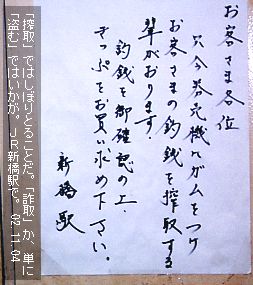 お客さま各位
只今券売機にガムをつけ
お客さまの釣銭を搾取する
輩がおります.
釣銭を御確認の上、
きっぷをお買い求め下さい。
新橋駅
「搾取」ではしぼりとることだ。「詐取」か、単に
「盗む」ではいかが。ＪＲ新橋駅で。 02.11.04